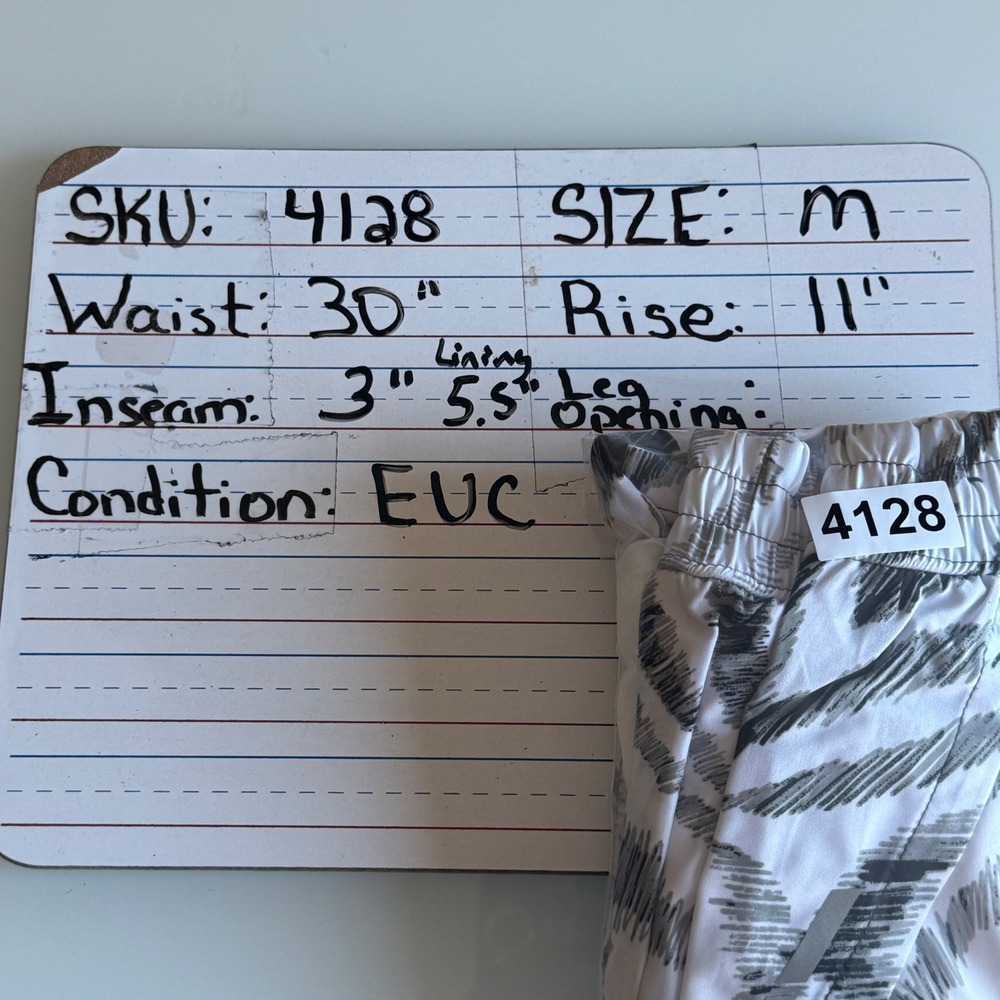 SKU: 4128 SIZE: M
Waist: 30" Rise: 11"
Lining
Inseam: 3" 5.5" Leg Opening:
Condition: EUC
4128